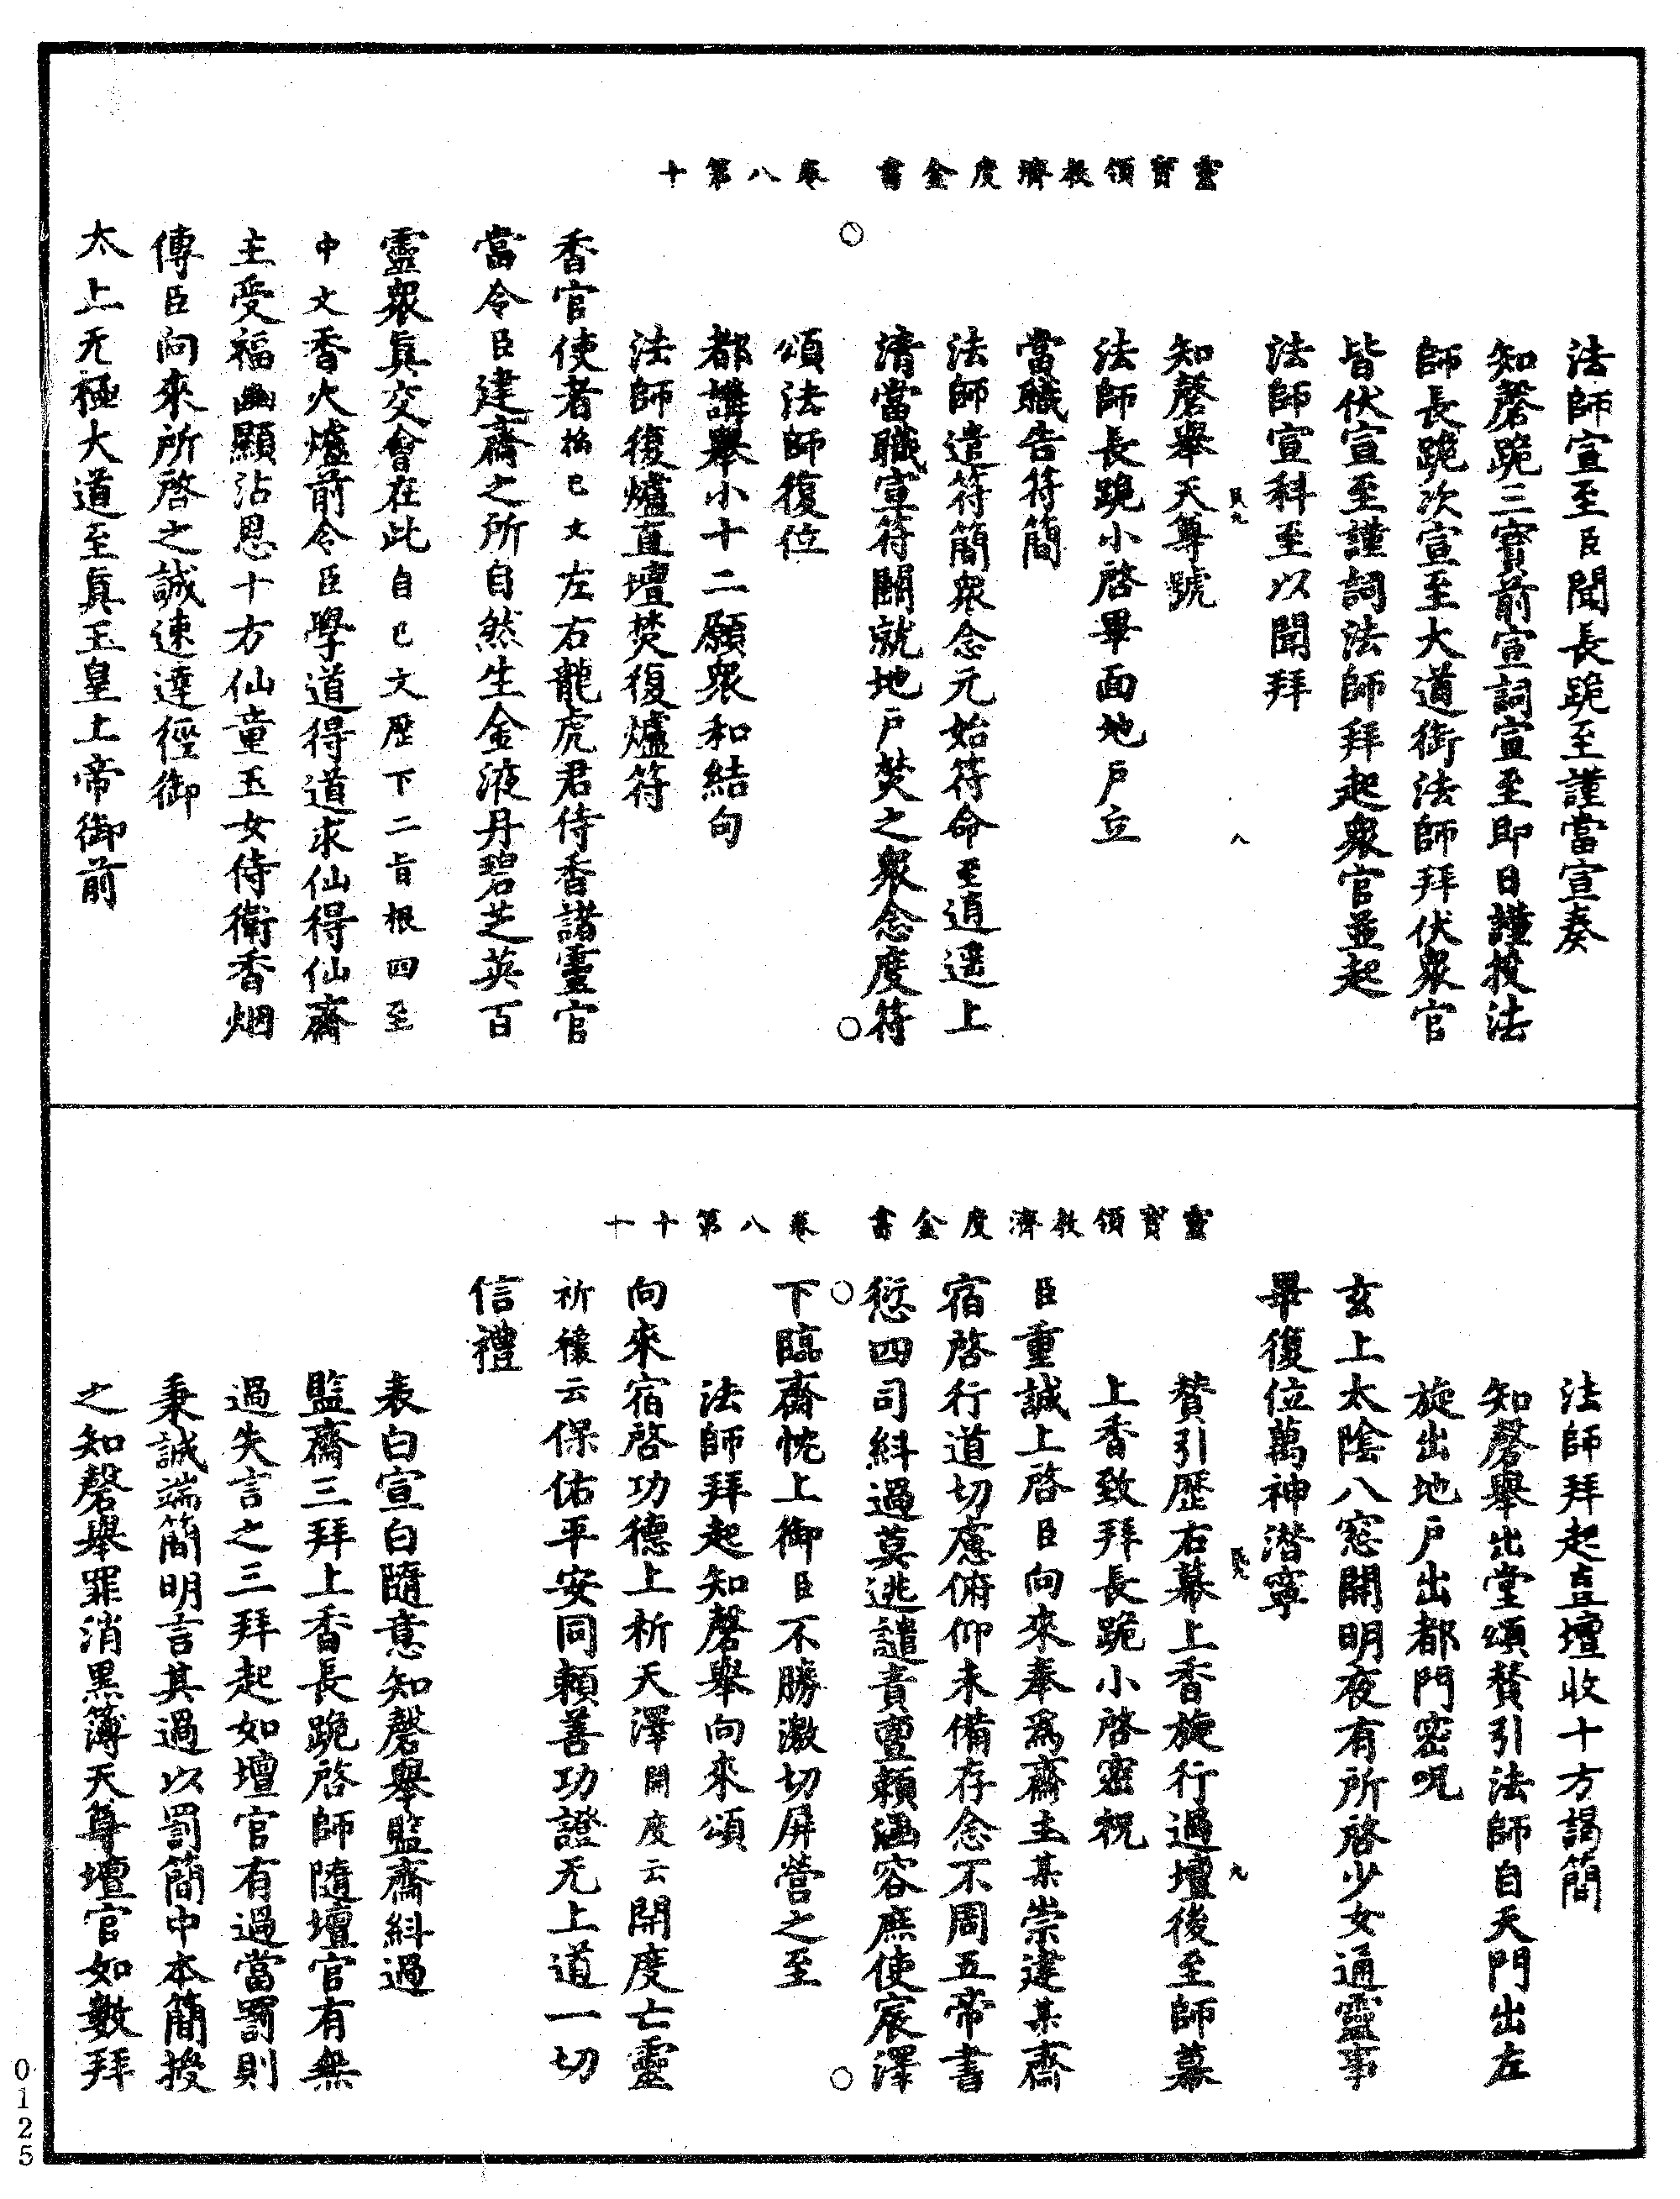 靈寶領教濟度金書　卷八第十
法師宣至臣聞長跪至謹當宣奏
知磬跪三寶前宣詞宣至即日謹授法
師長跪次宣至大道衡法師拜伏眾官
皆伏宣至謹詞法師拜起眾官並起
法師宣科至以聞拜
知磬舉天尊號
法師長跪小啓畢面地戶立
當職告符簡
法師遣符簡眾念元始符命至逍遥上
清當職宣符關就地戶焚之眾念度符
頌法師復位
都講舉小十二願眾和結句
法師復爐直壇焚復爐符
香官使者栢已文左右龍虎君侍香諸靈官
當令臣建齋之所自然生金液丹碧芝英百
靈眾真交會在此自已文歷下二旨根四至
中文香火爐前令臣學道得道求仙得仙齋
主受福幽顯沾恩十方仙童玉女侍衛香烟
傳臣向來所啓之誠速達徑御
太上无極大道至真玉皇上帝御前
八
靈寶領教濟度金書　卷八第十十一
法師拜起直壇收十方謁簡
知磬舉出堂頌贊引法師自天門出左
旋出地戶出都門密呪
玄上太陰八窓開明夜有所啓少女通靈事
畢復位萬神潛寧
贊引歷右幕上香旋行過壇後至師幕
上香致拜長跪小啓密祝
臣重誠上啓臣向來奉爲齋主某崇建某齋
宿啓行道切慮俯仰未備存念不周五帝書
愆四司糾過莫逃譴責亶賴涵容庶使宸澤
下臨齋忱上御臣不勝激切屏營之至
法師拜起知磬舉向來頌
向來宿啓功德上祈天澤開度云開度亡靈
祈禳云保佑平安同賴善功證无上道一切
信禮
表白宣白隨意知磬舉監齋糾過
監齋三拜上香長跪啓師隨壇官有無
過失言之三拜起如壇官有過當罰則
秉誠端簡明言其過以罰簡中本簡授
之知磬舉罪消黑簿天尊壇官如數拜
九
0125